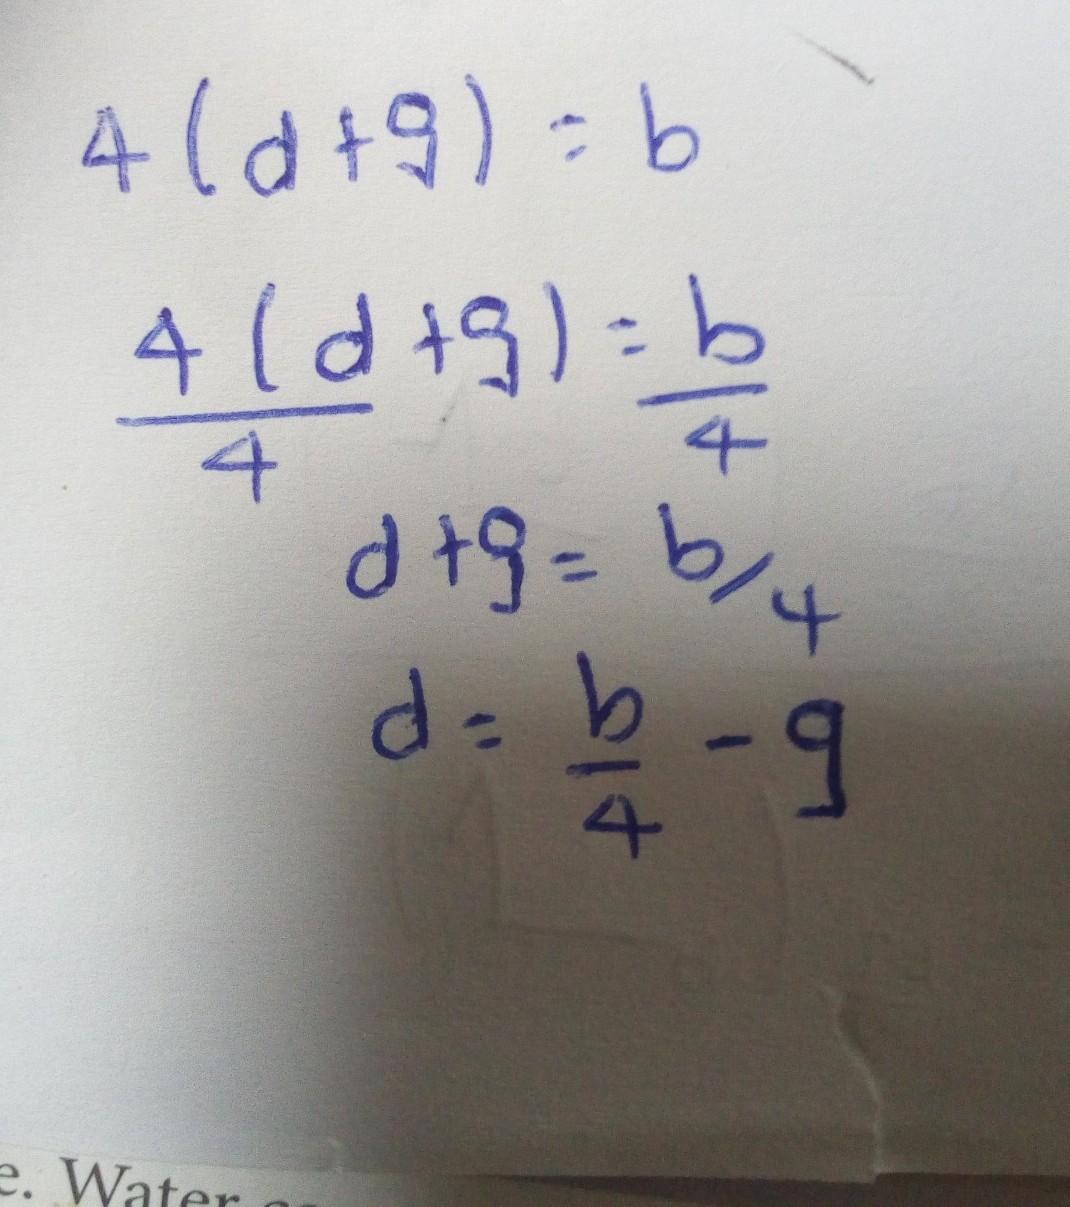 4(d+g) = b
4(d+g) = b
4 4
d+g = b/4
d = b/4 - g
e. Water